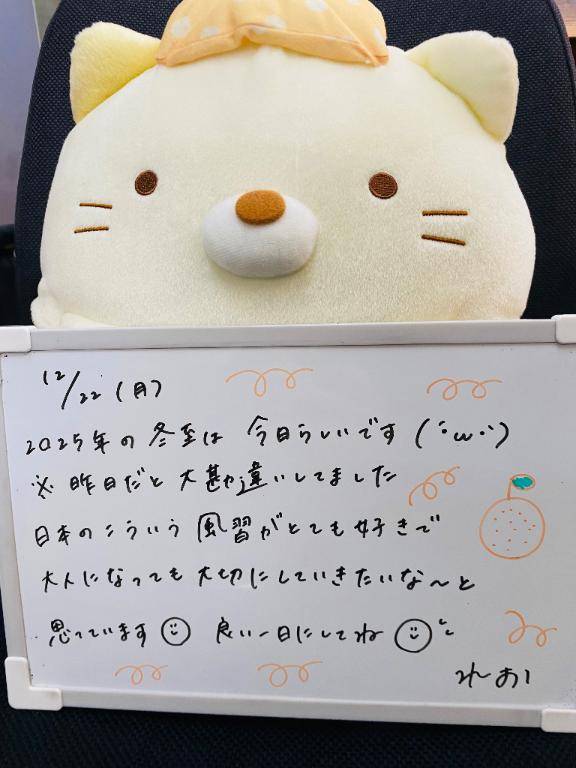 12/22(月)
2025年の冬至は 今日らしいです(´･ω･`)
※昨日だと大勘違いしてました
日本のこういう風習がとても好きで
大人になっても大切にしていきたいな〜と
思っています 良い一日にしてね